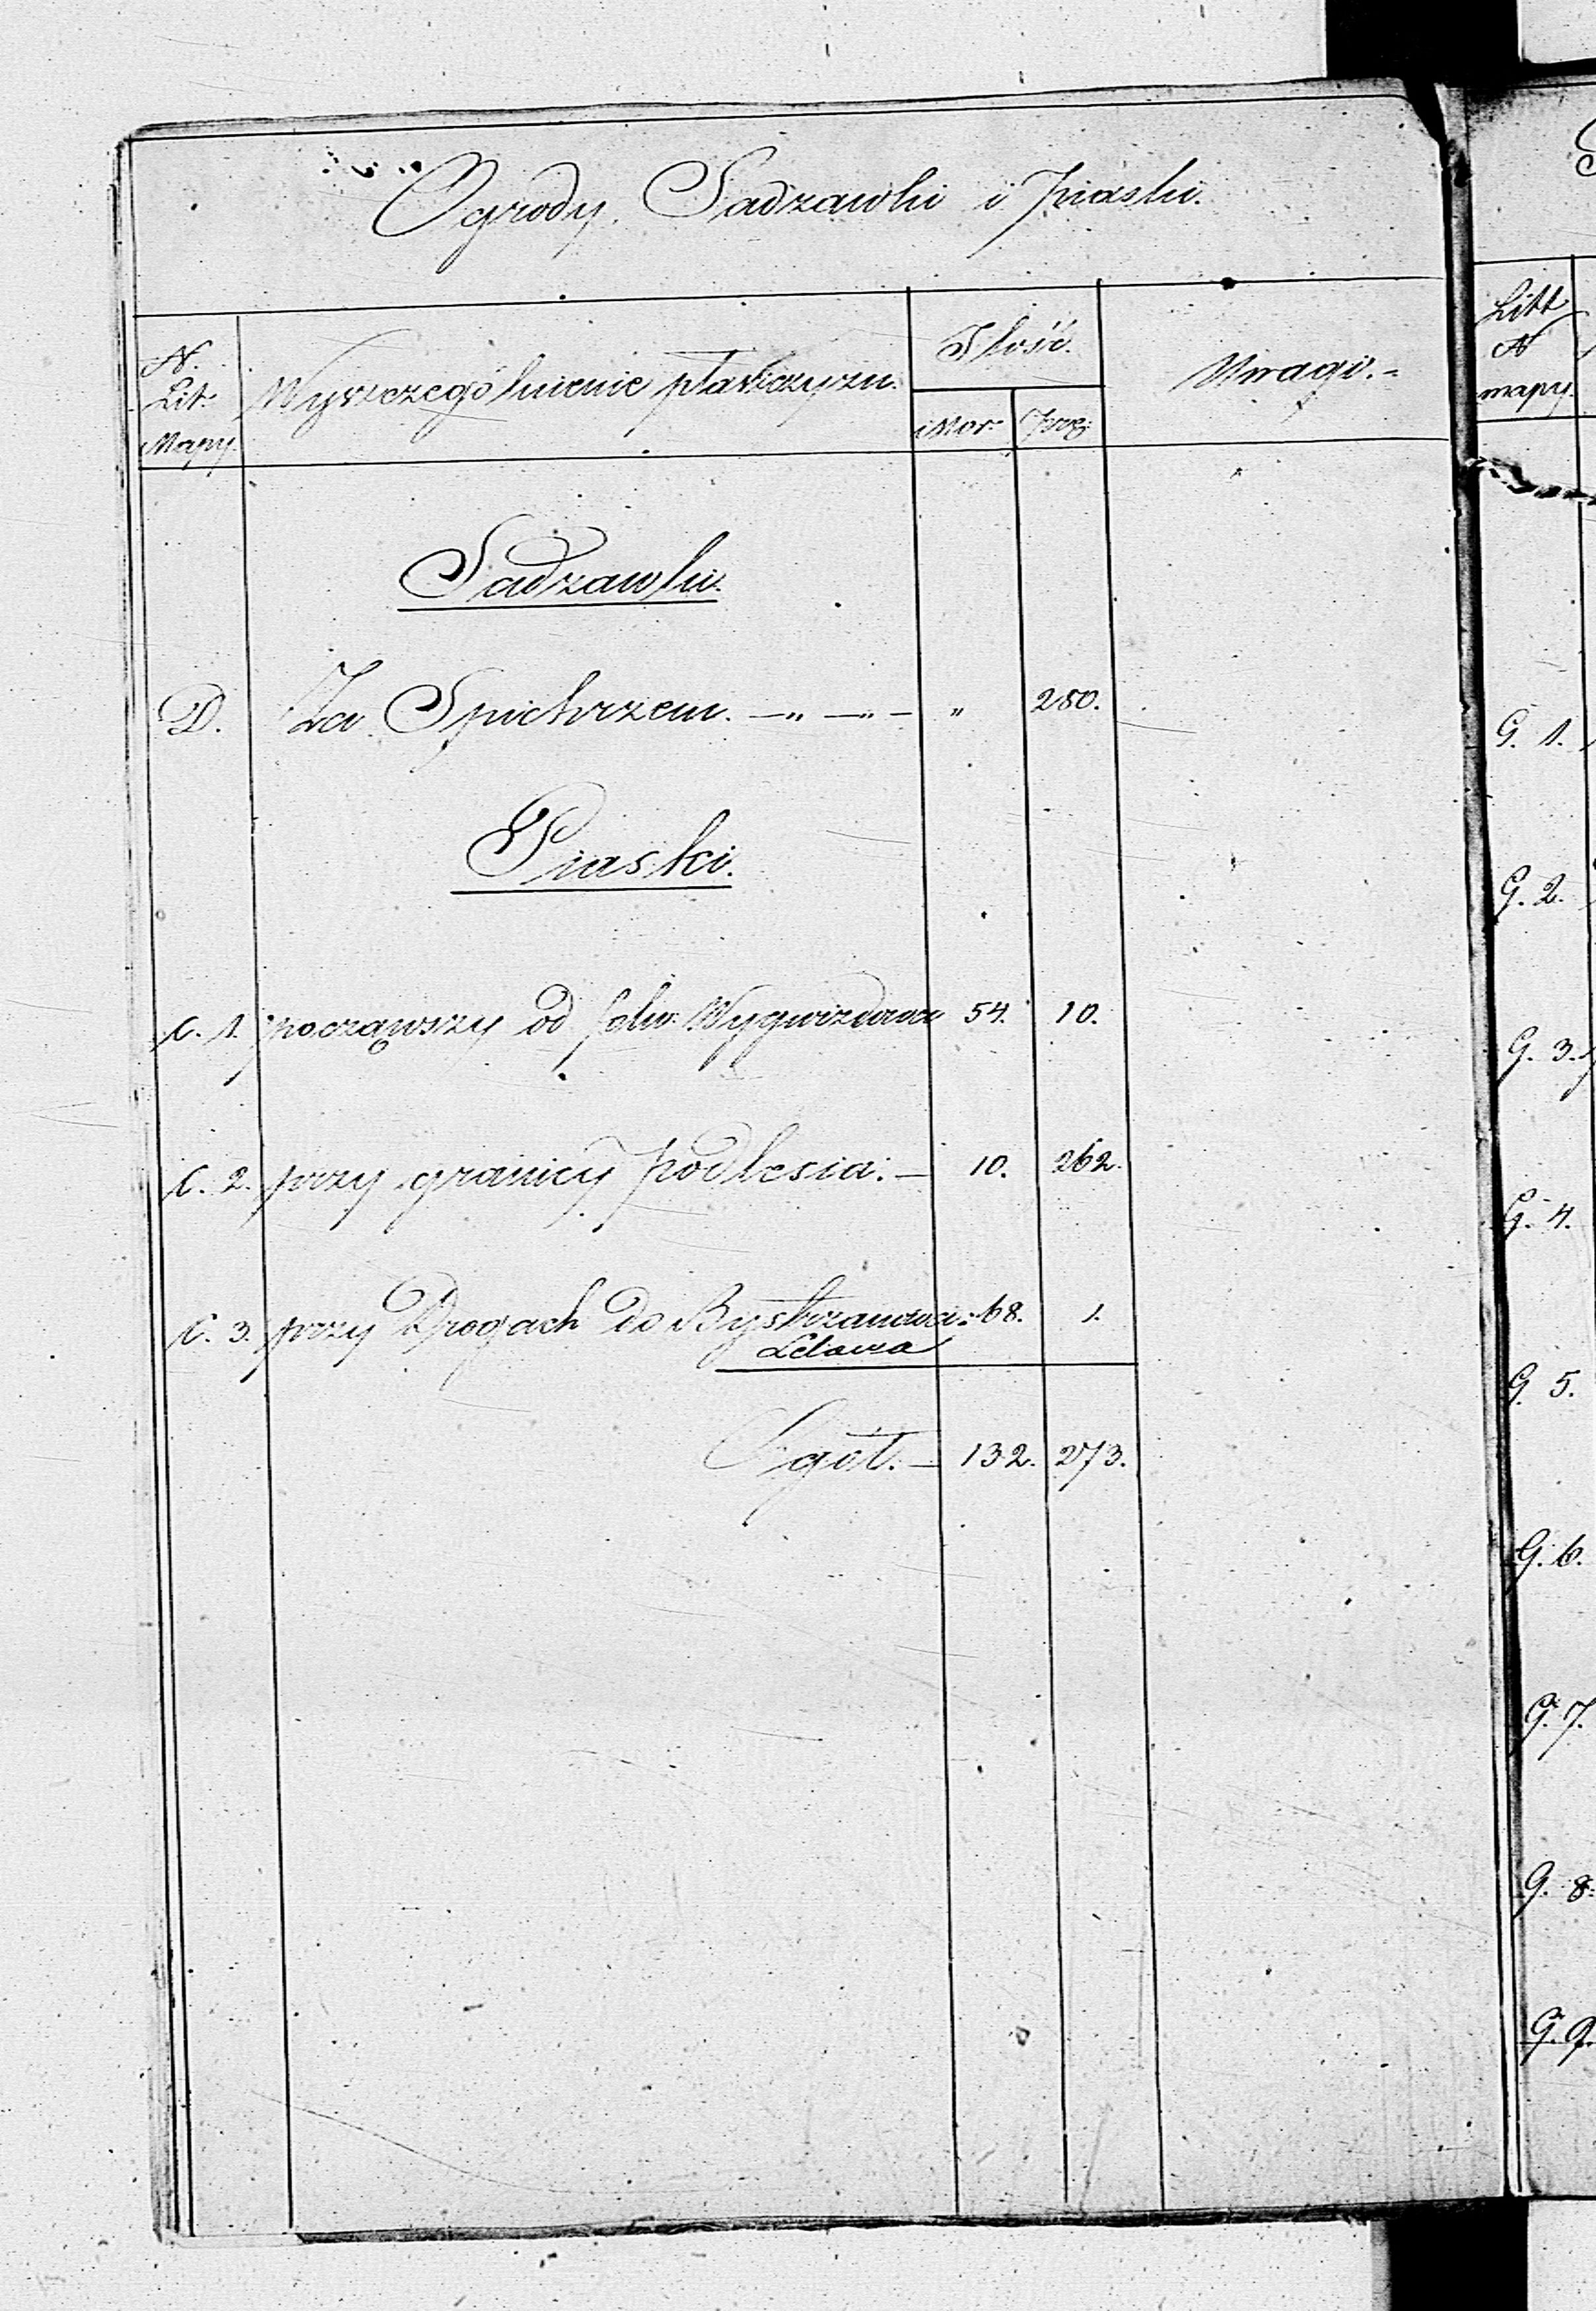 Ogrody, Sadzawki i piaski.
N.
Lit.
Mapy
Wyszczególnienie płaszczyzn.
Ilość.
Mor. Pręt.
Uwagi.-
Sadzawki.
D. Za Spichrzem. —„ —„— „ 280.
Piaski.
C. 1. począwszy od folw. Wygwizdowa 54. 10.
C. 2. przy granicy Podlesia. — 10. 262.
C. 3. przy Drogach do Bystrzanowic 68. 1.
Lelowa
Ogół. — 132. 273.
Litt
N
mapy.
G. 1.
G. 2.
G. 3.
G. 4.
G. 5.
G. 6.
G. 7.
G. 8.
G. 9.